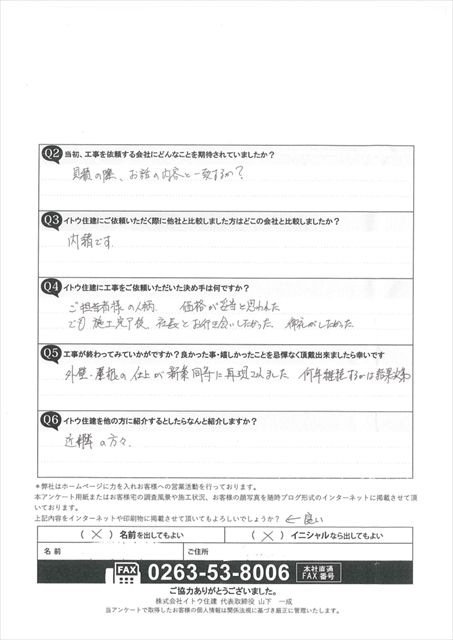 Q2 当初、工事を依頼する会社にどんなことを期待されていましたか？
見積の際、お話の内容と一致するか？
Q3 イトウ住建にご依頼いただく際に他社と比較しました方はどこの会社と比較しましたか？
内緒です.
Q4 イトウ住建に工事をご依頼いただいた決め手は何ですか？
ご担当者様の人柄. 価格が妥当と思われた
でも施工完了後、社長とお付き合いしたかった
Q5 工事が終わってみていかがですか？良かった事・嬉しかったことを忌憚なく頂戴出来ましたら幸いです
外壁・屋根の仕上が新築同等に再現されました 何年維持するかは結果次第
Q6 イトウ住建を他の方に紹介するとしたらなんと紹介しますか？
近隣の方々.
＊弊社はホームページに力を入れお客様への営業活動を行っております。
本アンケート用紙またはお客様宅の調査風景や施工状況、お客様の顔写真を随時ブログ形式のインターネットに掲載させて頂
いております。
上記内容をインターネットや印刷物に掲載させて頂いてもよろしいでしょうか？ ← 良い
（ × ）名前を出してもよい （ × ）イニシャルなら出してもよい
名前 ご住所
FAX 0263-53-8006 本社直通 FAX番号
ご協力ありがとうございました。
株式会社イトウ住建 代表取締役 山下 一成
当アンケートで取得したお客様の個人情報は関係法規に基づき厳正に管理いたします。